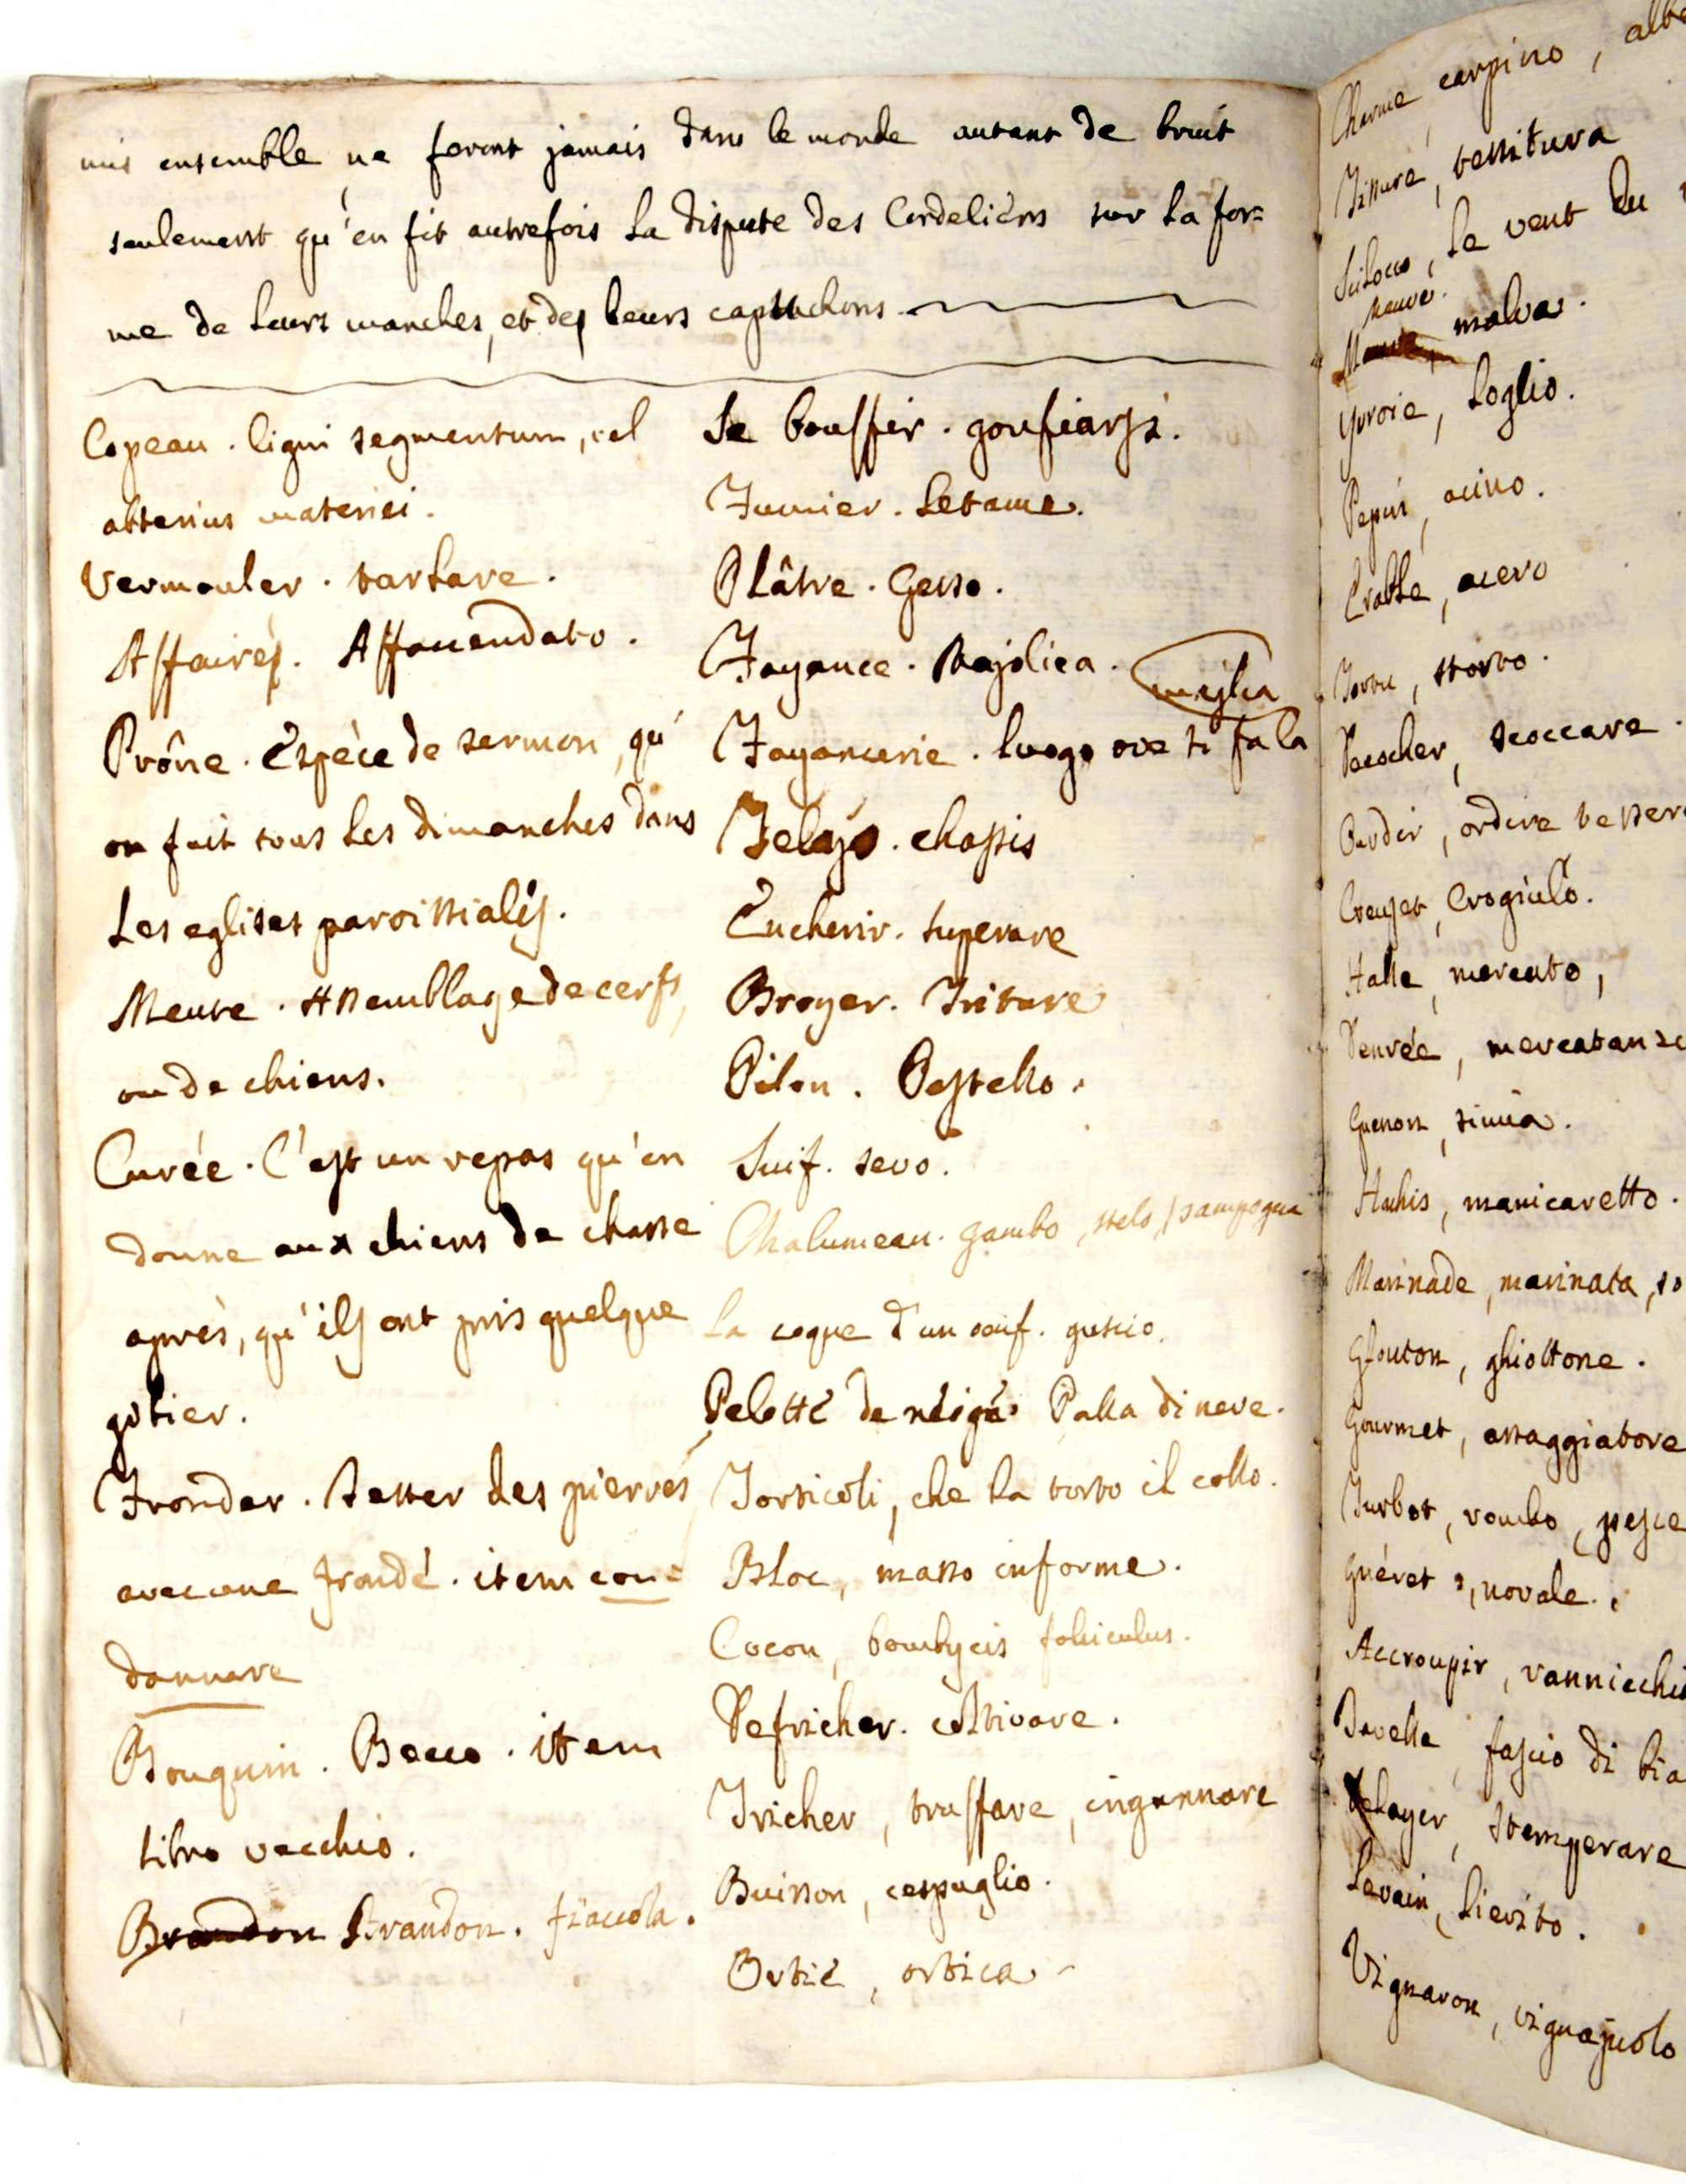 mis ensemble ne feront jamais dans le monde autant de bruit
seulement qu'en fit autrefois la dispute des Cordeliers sur la for=
me de leurs manches, et des leurs capuchons
Copeau . ligni segmentum, vel
materiei .
Vermouler . tarlare .
Affairés . Affacendato .
Prône . Espèce de sermon, qu'
on fait tous les dimanches dans
les eglises paroissiales .
Meute . Assemblage de cerfs,
ou de chiens .
Curée . C'est un repas qu'on
donne aux chiens de chasse
après, qu'ils ont pris quelque
gibier .
Fronder . Jetter des pierres
avec une fronde . item con=
dannare
Bouquin . Becco . item
libro vecchio .
Brandon Brandon . fiaccola .
Se bouffir . gonfiarsi .
Fumier . letame .
Plâtre . Gesso .
Fayance . Majolica .
Fayancerie . luogo ove si fa la
chassis
Encherir . superare
Broyer . Triture
Pilon . Pestello .
Suif . sevo .
Chalumeau . gambo, stelo, sampogna
La coque d'un oeuf . guscio .
Pelotte de neige . Palla di neve .
Torticoli, che ha torto il collo .
Bloc, masso informe .
Cocon, bombycis folliculus .
Defricher . coltivare .
Tricher, truffare, ingannare
Buisson, cespuglio .
Ortie, ortica
Charme, carpino, albe
tessitura
le vent du
mauve .
malva .
Yvroie, loglio .
Pepin, acino .
Erable, acero
Tortu, storto .
scoccare .
Ourdir, ordire tesser
Creuset, Crogiulo .
Halle, mercato,
Denrée, mercatanz
Guenon, simia .
Hachis, manicaretto .
Marinade, marinata, so
Glouton, ghiottone .
Gourmet, assaggiatore
Turbot, rombo, pesce
Guéret, novale .
Accroupir, rannicchia
Javelle, fascio di bia
Delayer, stemperare
Levain, lievito .
Vigneron, vignajuolo